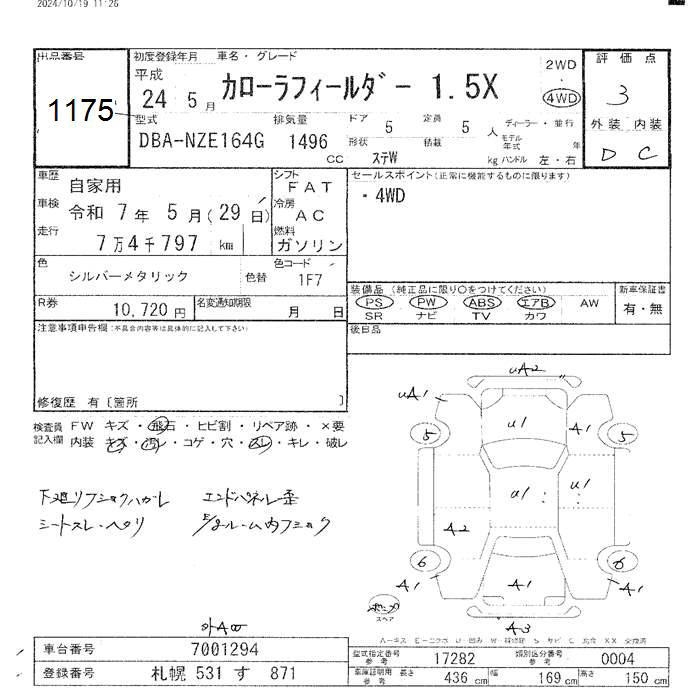 2024/10/19 11:26
出品番号 初度登録年月 車名・グレード 評価点
1175
平成 24 5月 カローラフィールダー 1.5X
2WD
・
4WD
3
型式 排気量 ドア 5 定員 5人 ディーラー・並行
外装 内装
DBA-NZE164G 1496 CC 形状 ステW 積載 kg モデル年式 年
ハンドル 左・右
D C
車歴 自家用 シフト FAT セールスポイント(正常に機能するものに限ります)
車検 令和 7年 5月(29日) 冷房 AC ・4WD
走行 7万4千797 km 燃料 ガソリン
色 シルバーメタリック 色替 色コード 1F7
装備品 (純正品に限り○をつけてください) 新車保証書
PS PW ABS エアB AW 有・無
SR ナビ TV カワ
R券 10,720円 名変通知期限 月 日
後日品
注意事項申告欄(不具合内容等は具体的に記入して下さい)
修復歴 有〔箇所 〕
検査員 FW キズ・飛石・ヒビ割・リペア跡・×要
記入欄 内装 キズ・汚レ・コゲ・穴・スレ・キレ・破レ
エンドパネル歪
シートスレ・ヘリ
uA2
uA1 U1 A1
5 5
U1 U1
A2
6 6
A1 A1 A1
スペア
A3
車台番号 7001294
登録番号 札幌 531 す 871
型式指定番号 参考 17282 類別区分番号 参考 0004
車庫証明用 参考 長さ 436 cm 幅 169 cm 高さ 150 cm